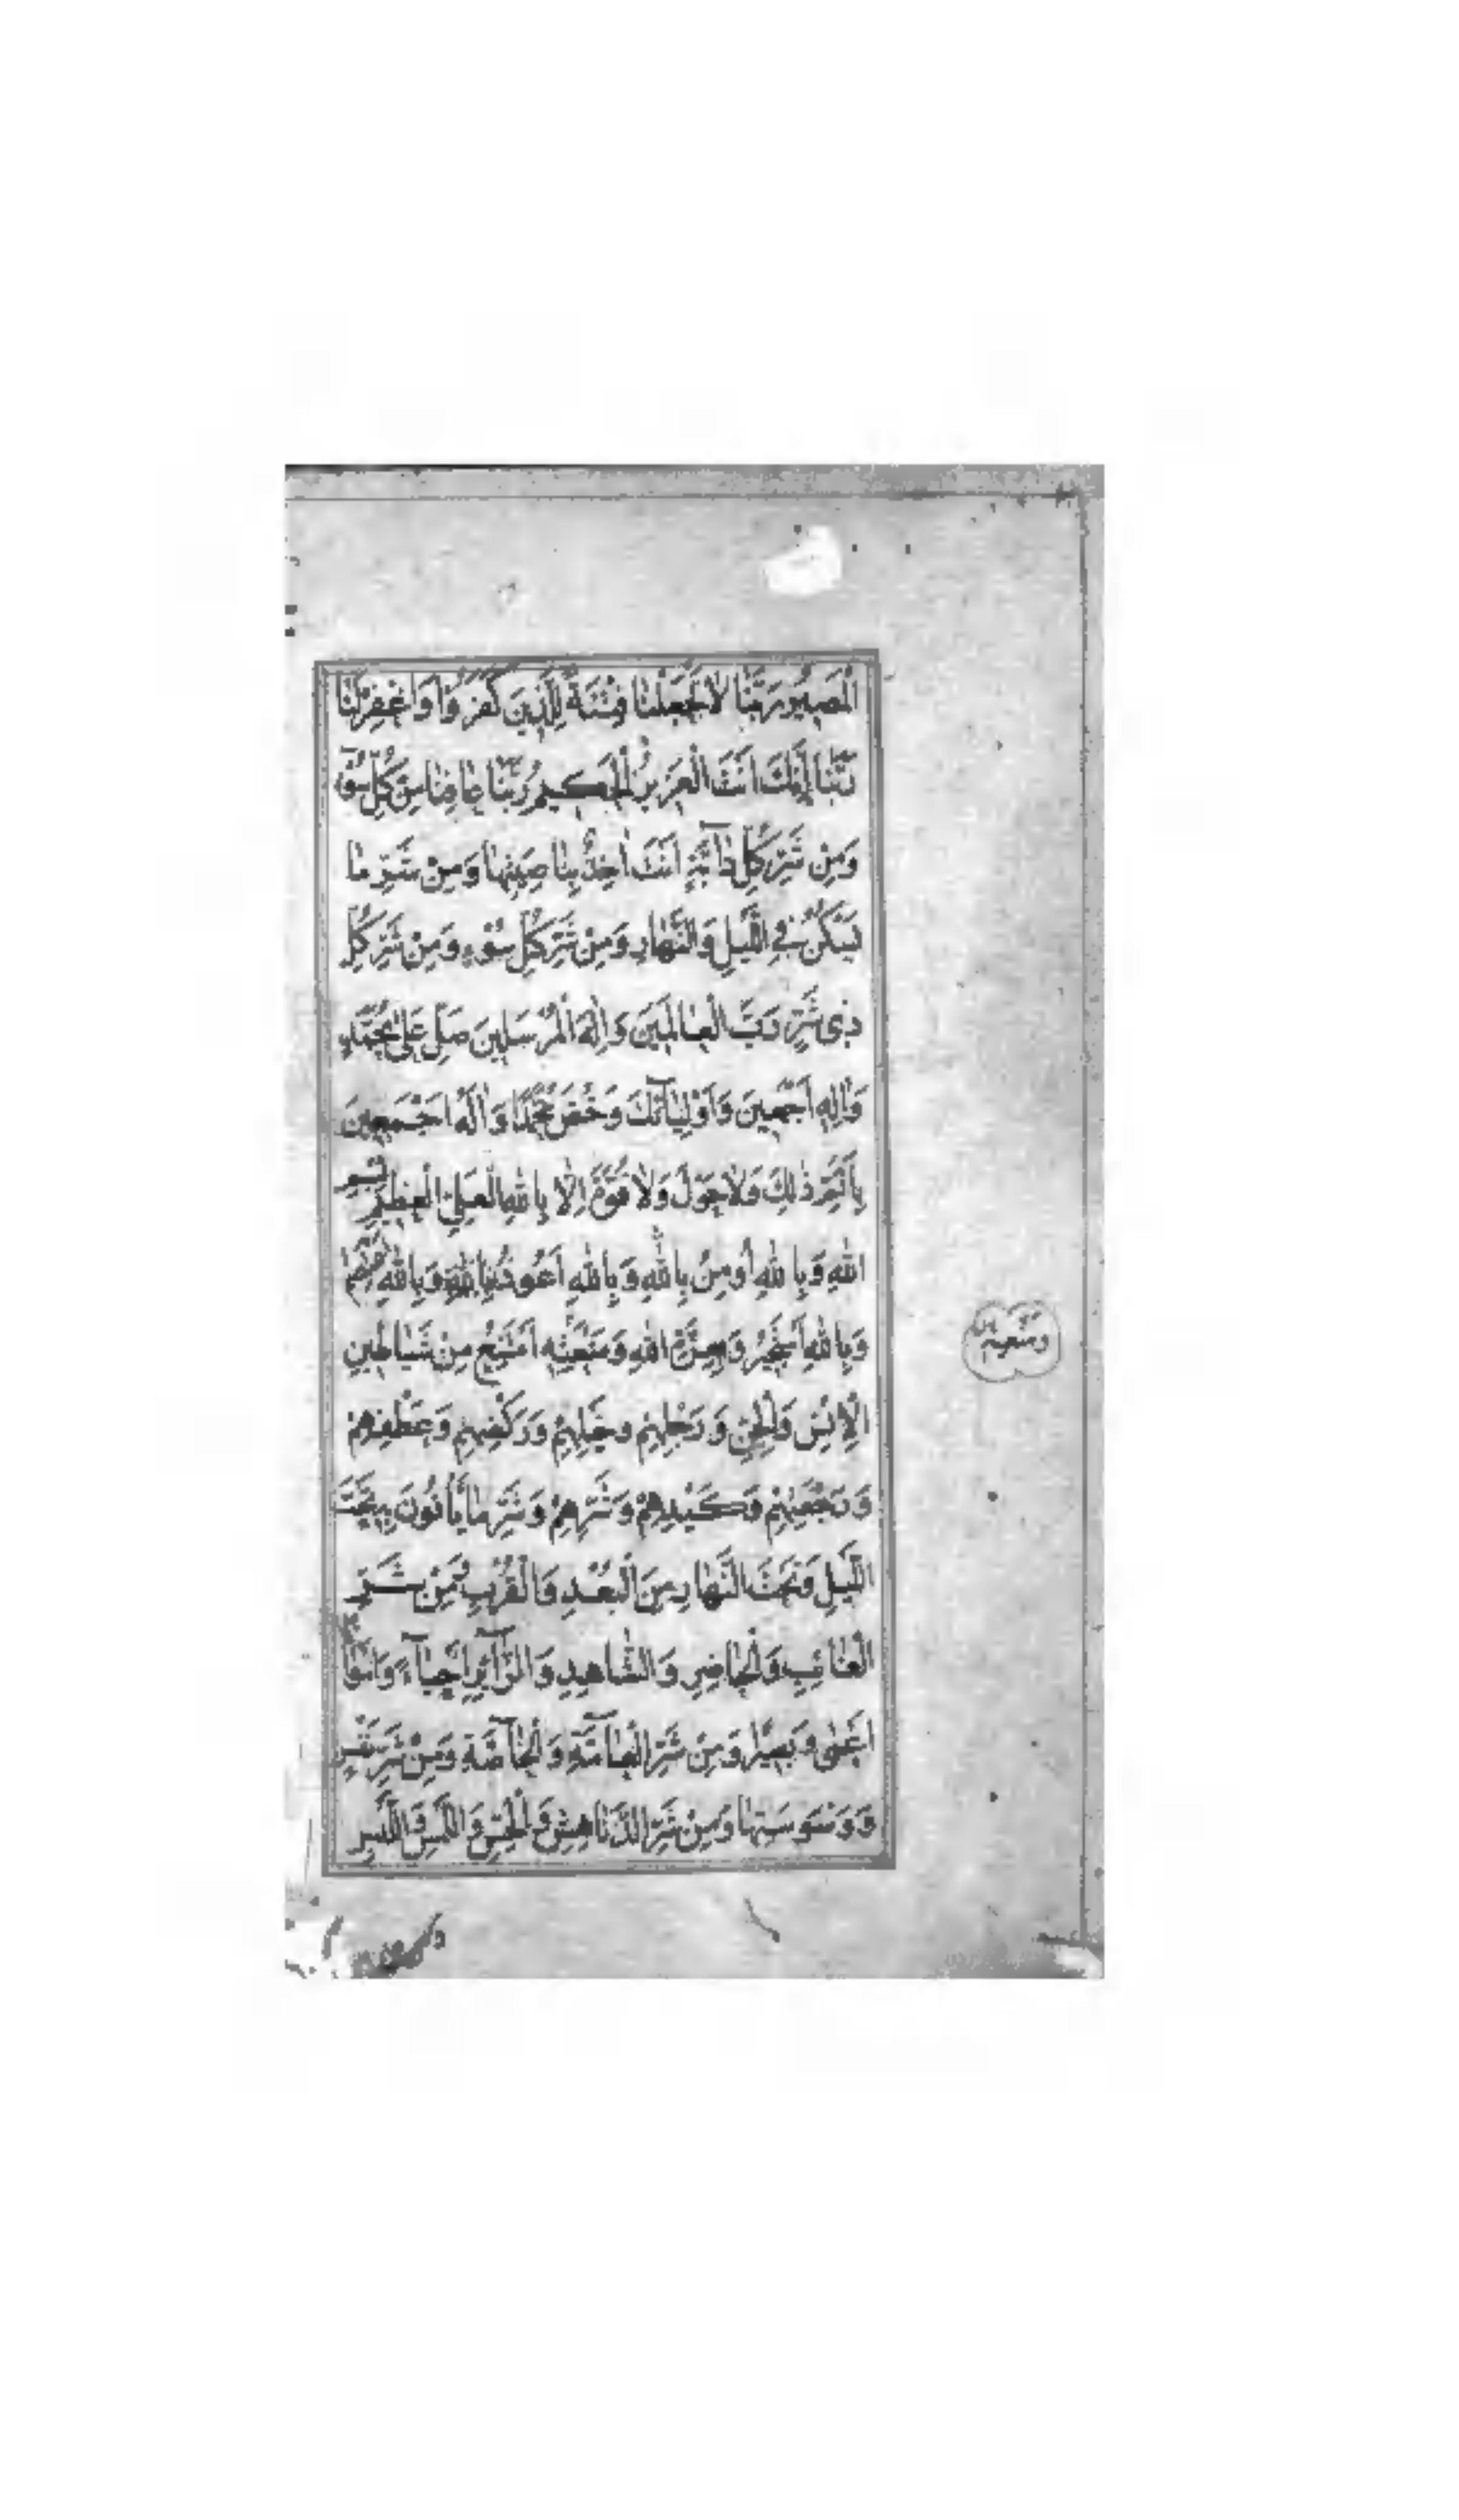 الْمَصِيرُ رَبَّنَا لَا تَجْعَلْنَا فِتْنَةً لِلَّذِينَ كَفَرُوا وَاغْفِرْ لَنَا
رَبَّنَا إِنَّكَ أَنْتَ الْعَزِيزُ الْحَكِيمُ رَبَّنَا عَافِنَا مِنْ كُلِّ سُوءٍ
وَمِنْ شَرِّ كُلِّ دَابَّةٍ أَنْتَ آخِذٌ بِنَاصِيَتِهَا وَمِنْ شَرِّ مَا
يَسْكُنُ فِي اللَّيْلِ وَالنَّهَارِ وَمِنْ شَرِّ كُلِّ سُوءٍ وَمِنْ شَرِّ كُلِّ
ذِي شَرٍّ رَبَّ الْعَالَمِينَ وَإِلَهَ الْمُرْسَلِينَ صَلِّ عَلَى مُحَمَّدٍ
وَآلِهِ أَجْمَعِينَ وَأَوْلِيَائِكَ وَخُصَّ مُحَمَّدًا وَآلَهُ أَجْمَعِينَ
بِأَتَمِّ ذَلِكَ وَلَا حَوْلَ وَلَا قُوَّةَ إِلَّا بِاللَّهِ الْعَلِيِّ الْعَظِيمِ بِسْمِ
اللَّهِ وَبِاللَّهِ أُومِنُ بِاللَّهِ وَبِاللَّهِ أَعُوذُ وَبِاللَّهِ
وَبِاللَّهِ أَسْتَجِيرُ وَبِعِزَّةِ اللَّهِ وَمَنْعَتِهِ أَمْتَنِعُ مِنْ شَيَاطِينِ
الْإِنْسِ وَالْجِنِّ وَرَجِلِهِمْ وَخَيْلِهِمْ وَرَكْضِهِمْ وَعَطْفِهِمْ
وَرَجْعَتِهِمْ وَكَيْدِهِمْ وَشَرِّهِمْ وَشَرِّ مَا يَأْتُونَ بِهِ تَحْتَ
اللَّيْلِ وَتَحْتَ النَّهَارِ مِنَ الْبُعْدِ وَالْقُرْبِ وَمِنْ شَرِّ
الْغَائِبِ وَالْحَاضِرِ وَالشَّاهِدِ وَالزَّائِرِ أَحْيَاءً وَأَمْوَاتًا
أَعْمَى وَبَصِيرًا وَمِنْ شَرِّ الْعَامَّةِ وَالْخَاصَّةِ وَمِنْ شَرِّ نَفْسٍ
وَوَسْوَسَتِهَا وَمِنْ شَرِّ الدَّنَاهِشِ وَالْحِسِّ وَاللَّمْسِ وَاللَّبْسِ